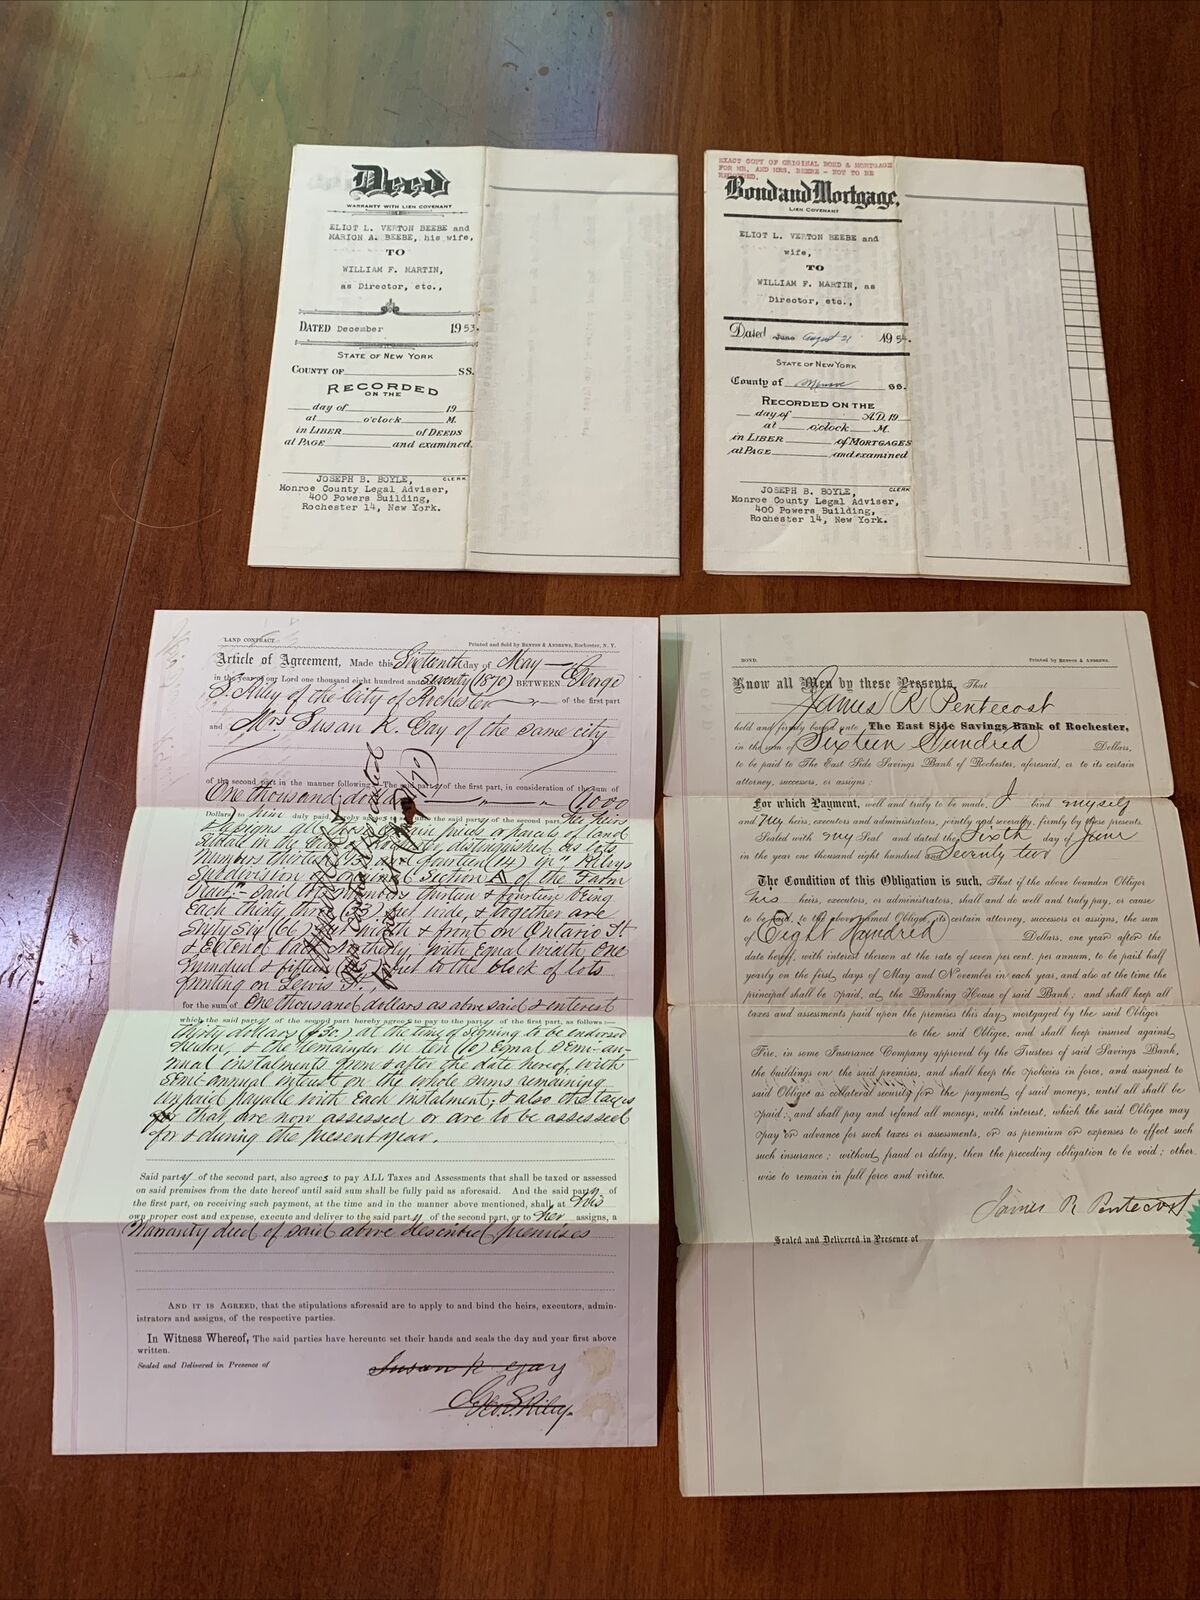 Deed
WARRANTY WITH LIEN COVENANT
ELIOT L. VERTON BEEBE and
MARION A. BEEBE, his wife,
TO
WILLIAM F. MARTIN,
as Director, etc.,
DATED December 1953.
STATE OF NEW YORK
COUNTY OF SS.
RECORDED
ON THE
day of 19
at o'clock M.
in LIBER of DEEDS
at PAGE and examined.
CLERK
JOSEPH B. BOYLE,
Monroe County Legal Adviser,
400 Powers Building,
Rochester 14, New York.
EXACT COPY OF ORIGINAL BOND & MORTGAGE
FOR MR. AND MRS. BEEBE - NOT TO BE
RECORDED.
Bond and Mortgage,
LIEN COVENANT
ELIOT L. VERTON BEEBE and
wife,
TO
WILLIAM F. MARTIN, as
Director, etc.,
Dated June August 21 1954.
STATE OF NEW YORK
County of Monroe SS.
RECORDED ON THE
day of A.D. 19
at o'clock M.
in LIBER of MORTGAGES
at PAGE and examined
CLERK
JOSEPH B. BOYLE,
Monroe County Legal Adviser,
400 Powers Building,
Rochester 14, New York.
LAND CONTRACT Printed and Sold by BENTON & ANDREWS, Rochester, N. Y.
Article of Agreement, Made this Sixteenth day of May
in the year of our Lord one thousand eight hundred and Seventy (1870) BETWEEN George
S. Riley of the City of Rochester of the first part
and Mrs Susan K. Gay of the same city
of the second part in the manner following: The said party of the first part, in consideration of the sum of
One thousand dollars (1000
Dollars to him duly paid, hereby agrees the said party of the second part, her heirs
& assigns all parcels of land
situate in the distinguished as lots
numbers thirteen (13) and fourteen (14) in "Rileys
Subdivision of original Section A of the Farm
Tract" - said lots numbers thirteen & fourteen being
Each thirty three (33) feet wide, & together are
Sixty Six (66) feet width & front on Ontario St
& Extend back Northerly, with Equal width One
Hundred & fifteen feet to the block of lots
fronting on Lewis St,
for the sum of One thousand dollars as above said & interest
which the said party of the second part hereby agrees to pay to the party of the first part, as follows:
thirty dollars ($30) at the time of signing to be endorsed
hereon, & the remainder in ten (10) Equal Semi-an-
nual instalments from & after the date hereof, with
Semi-annual interest on the whole sums remaining
unpaid payable with Each instalment; & also the taxes
that are now assessed or are to be assessed
for & during the present year.
Said party of the second part, also agrees to pay ALL Taxes and Assessments that shall be taxed or assessed
on said premises from the date hereof until said sum shall be fully paid as aforesaid. And the said party of
the first part, on receiving such payment, at the time and in the manner above mentioned, shall at his
own proper cost and expense, execute and deliver to the said party of the second part, or to her assigns, a
Warranty deed of said above described premises
AND IT IS AGREED, that the stipulations aforesaid are to apply to and bind the heirs, executors, admin-
istrators and assigns, of the respective parties.
In Witness Whereof, The said parties have hereunto set their hands and seals the day and year first above
written.
Sealed and Delivered in Presence of
Susan K Gay
Geo. S. Riley
BOND. Printed by BENTON & ANDREWS.
Know all Men by these Presents, That
James R Pentecost
held and firmly bound unto The East Side Savings Bank of Rochester,
in the sum of Sixteen Hundred Dollars,
to be paid to The East Side Savings Bank of Rochester, aforesaid, or to its certain
attorney, successors, or assigns:
For which Payment, well and truly to be made, I bind myself
and My heirs, executors and administrators, jointly and severally, firmly by these presents.
Sealed with my Seal and dated the Sixth day of June
in the year one thousand eight hundred and Seventy two
The Condition of this Obligation is such, That if the above bounden Obligor
his heirs, executors, or administrators, shall and do well and truly pay, or cause
to be paid, to the above named Obligee, its certain attorney, successors or assigns, the sum
of Eight Hundred Dollars, one year after the
date hereof, with interest thereon at the rate of seven per cent. per annum, to be paid half
yearly on the first days of May and November in each year, and also at the time the
principal shall be paid, at the Banking House of said Bank; and shall keep all
taxes and assessments paid upon the premises this day mortgaged by the said Obligor
to the said Obligee, and shall keep insured against
Fire, in some Insurance Company approved by the Trustees of said Savings Bank,
the buildings on the said premises, and shall keep the policies in force, and assigned to
said Obligee as collateral security for the payment of said moneys, until all shall be
paid; and shall pay and refund all moneys, with interest, which the said Obligee may
pay or advance for such taxes or assessments, or as premium or expenses to effect such
such insurance; without fraud or delay, then the preceding obligation to be void; other-
wise to remain in full force and virtue.
James R Pentecost
Sealed and Delivered in Presence of